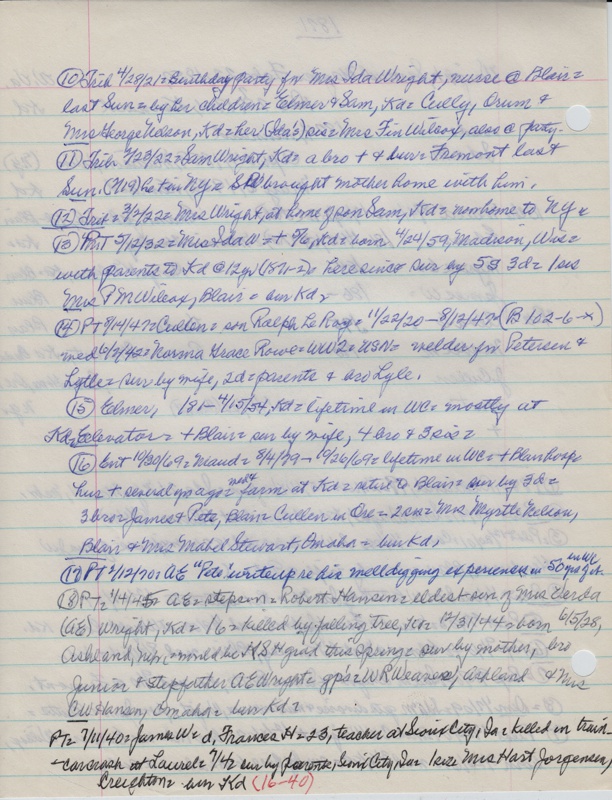 (10) Trib 4/28/21 = Birthday party for Mrs Ida Wright, nurse @ Blair =
last Sun = by her children = Elmer & Sam, Kd = Cully, Orum &
Mrs George Nelson, Kd = her (Ida's) sis = Mrs Fin Wilcox, also @ party.
(11) Trib 7/28/22 = Sam Wright, Kd = a bro + & bur = Fremont last
Sun. he + in NY = brought mother home with him.
(12) Trib = 3/2/22 = Mrs Wright, at home of son Sam, Kd = now home to NY &
(13) PT 5/12/32 = Mrs Ida W = + 5/6, Kd = born 4/24/59, Madison, Wis =
with parents to Kd @ 12 yr (1871-2) = here since = sur by 5S 3d = 1 sis
Mrs F M Wilcox, Blair = bur Kd =
(14) PT 8/14/47 = Cullen = son Ralph Le Roy = 11/22/20 – 8/12/47 = (B 102-6-x)
med 6/7/42 = Norma Grace Rowe = WW2 = USN = welder for Petersen &
Lytle = sur by wife, 2d = parents & bro Lyle.
(15) Elmer, 181 – 4/15/54, Kd = lifetime in WC = mostly at
Kd = Elevator = + Blair = sur by wife, 4 bro & 3 sis =
(16) Ent 10/30/69 = Maud = 8/4/79 – 10/26/69 = lifetime in WC = + Blair hosp
hus + several yrs ago = farm at Kd = retire to Blair = sur by 3d =
3 bro = James & Pete, Blair = Cullen in Ore = 2 sis = Mrs Myrtle Nelson,
Blair & Mrs Mabel Stewart, Omaha = bur Kd,
(17) PT 2/12/70 = AE "Pete" writeup re his welldigging experiences in 50 yrs of it. in WC
(18) PT = 1/4/45 = AE = stepson = Robert Hansen = eldest son of Mrs Verda
(AE) Wright, Kd = 16 = killed by falling tree, 12/31/44 = born 6/5/28,
Ashland, = would be H S H grad this spring = sur by mother, bro
Junior & stepfather AE Wright = gp's = W R Weaver, Ashland & Mrs
CW Hansen, Omaha = bur Kd =
PT = 7/11/40 = James W = d, Frances H = 23, teacher at Sioux City, Ia = killed in train
-car crash at Laurel = 7/4 = sur by parents, Sioux City, Ia = 1 sis = Mrs Hart Jorgensen,
Creighton = bur Kd (16-40)